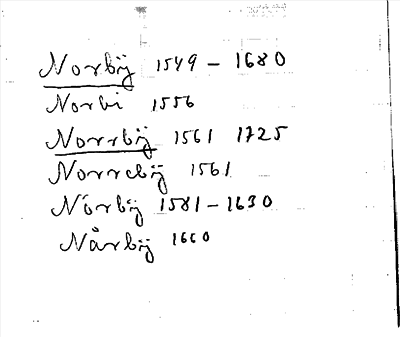 Norbÿ 1549 - 1680
Norbi 1556
Norrbÿ 1561 1725
Norrebÿ 1561
Nörbÿ 1581 - 1630
Nårbÿ 1660